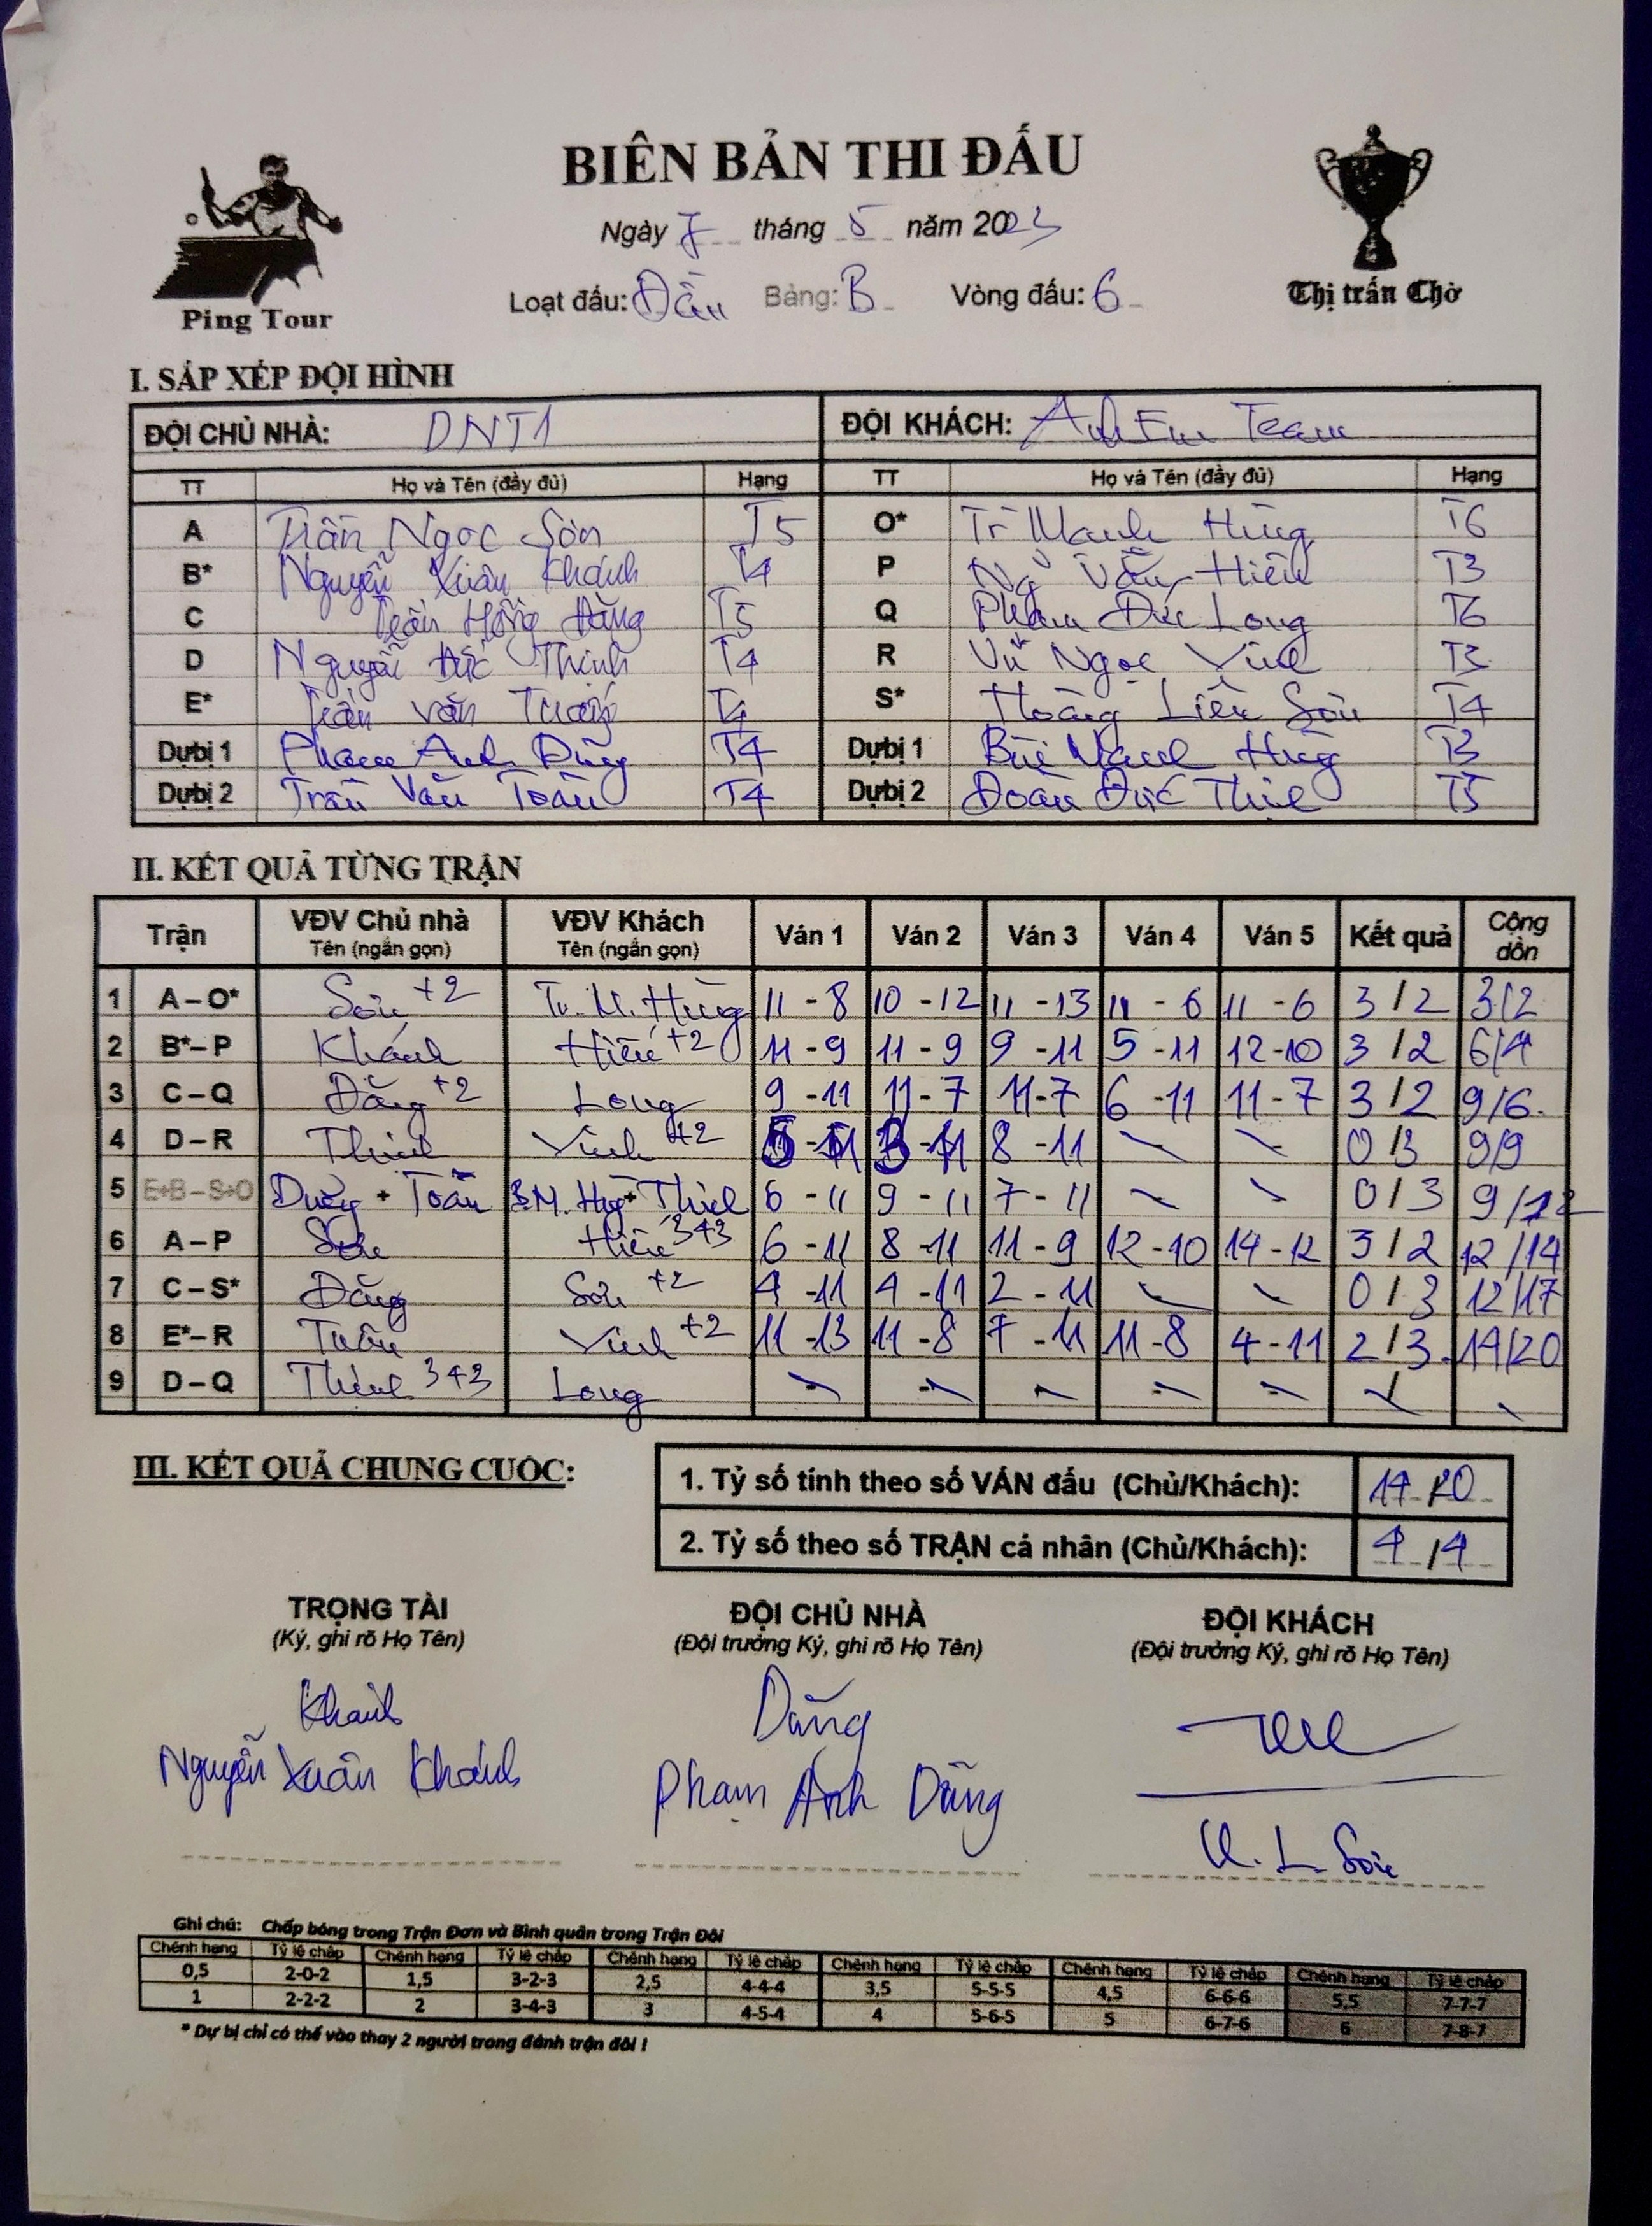 BIÊN BẢN THI ĐẤU
Ngày 7 tháng 5 năm 2023
Loạt đấu: Đầu Bảng: B Vòng đấu: 6
Ping Tour
Thị trấn Chờ
I. SẮP XẾP ĐỘI HÌNH
ĐỘI CHỦ NHÀ: DNT1 ĐỘI KHÁCH: Anh Em Team
TT Họ và Tên (đầy đủ) Hạng TT Họ và Tên (đầy đủ) Hạng
A Trần Ngọc Sơn T5 O* Tr Mạnh Hùng T6
B* Nguyễn Xuân Khánh T4 P Ng Văn Hiếu T3
C Trần Hồng Đăng T5 Q Phạm Đức Long T6
D Nguyễn Đức Thịnh T4 R Vũ Ngọc T3
E* Trần Văn T4 S* Hoàng Liên Sơn T4
Dự bị 1 Phạm Anh Dũng T4 Dự bị 1 Bùi Mạnh Hùng T3
Dự bị 2 Trần Văn Toàn T4 Dự bị 2 Đoàn Đức T5
II. KẾT QUẢ TỪNG TRẬN
Trận VĐV Chủ nhà VĐV Khách Ván 1 Ván 2 Ván 3 Ván 4 Ván 5 Kết quả Cộng dồn
Tên (ngắn gọn) Tên (ngắn gọn)
1 A – O* Sơn +2 Tr. M. Hùng 11 - 8 10 - 12 11 - 13 11 - 6 11 - 6 3 / 2 3/2
2 B* – P Khánh Hiếu +2 11 - 9 11 - 9 9 - 11 5 - 11 12 - 10 3 / 2 6/4
3 C – Q Đăng +2 Long 9 - 11 11 - 7 11 - 7 6 - 11 11 - 7 3 / 2 9/6.
4 D – R Thịnh +2 5 - 11 3 - 11 8 - 11 \ \ 0 / 3 9/9
5 E+B – S+O Dũng + Toàn B.M. Hùng + 6 - 11 9 - 11 7 - 11 \ \ 0 / 3 9/12
6 A – P Sơn Hiếu 343 6 - 11 8 - 11 11 - 9 12 - 10 14 - 12 3 / 2 12/14
7 C – S* Đăng Sơn +2 4 - 11 4 - 11 2 - 11 \ \ 0 / 3 12/17
8 E* – R +2 11 - 13 11 - 8 7 - 11 11 - 8 4 - 11 2 / 3. 14/20
9 D – Q Thịnh 343 Long \ \ \ \ \ \ \
III. KẾT QUẢ CHUNG CUỘC:
1. Tỷ số tính theo số VÁN đấu (Chủ/Khách): 14/20
2. Tỷ số theo số TRẬN cá nhân (Chủ/Khách): 4/4
TRỌNG TÀI ĐỘI CHỦ NHÀ ĐỘI KHÁCH
(Ký, ghi rõ Họ Tên) (Đội trưởng Ký, ghi rõ Họ Tên) (Đội trưởng Ký, ghi rõ Họ Tên)
Khánh Dũng
Nguyễn Xuân Khánh Phạm Anh Dũng H. L. Sơn
Ghi chú: Chấp bóng trong Trận Đơn và Bình quân trong Trận Đôi
Chênh hạng Tỷ lệ chấp Chênh hạng Tỷ lệ chấp Chênh hạng Tỷ lệ chấp Chênh hạng Tỷ lệ chấp Chênh hạng Tỷ lệ chấp Chênh hạng Tỷ lệ chấp
0,5 2-0-2 1,5 3-2-3 2,5 4-4-4 3,5 5-5-5 4,5 6-6-6 5,5 7-7-7
1 2-2-2 2 3-4-3 3 4-5-4 4 5-6-5 5 6-7-6 6 7-8-7
* Dự bị chỉ có thể vào thay 2 người trong đánh trận đôi !